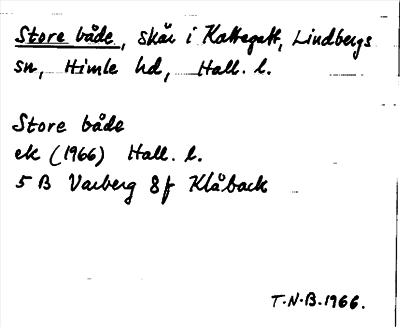 Store både, skär i Kattegatt, Lindbergs
sn, Himle hd, Hall. l.
Store både
ek (1966) Hall. l.
5 B Varberg 8f Klåback
T.N.B. 1966.